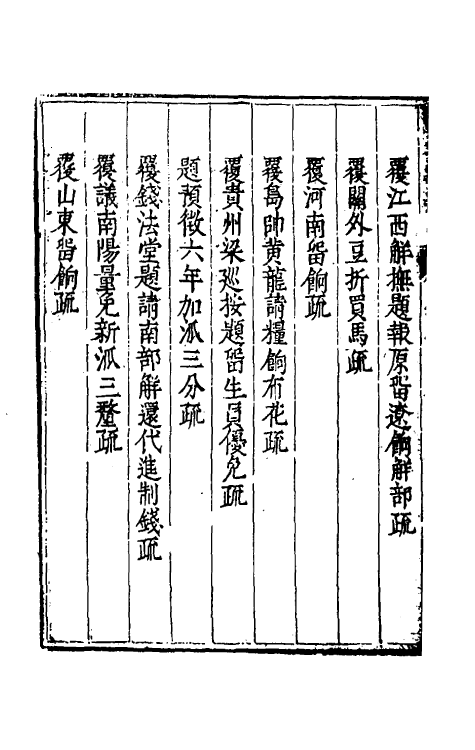 覆江西解撫題報原留遼餉解部疏
覆關外豆折買馬疏
覆河南留餉疏
覆島帥黃龍請糧餉布花疏
覆貴州梁廵按題留生員優免疏
題預徵六年加派三分疏
覆錢法堂題請南部解還代進制錢疏
覆議南陽量免新派三釐疏
覆山東留餉疏